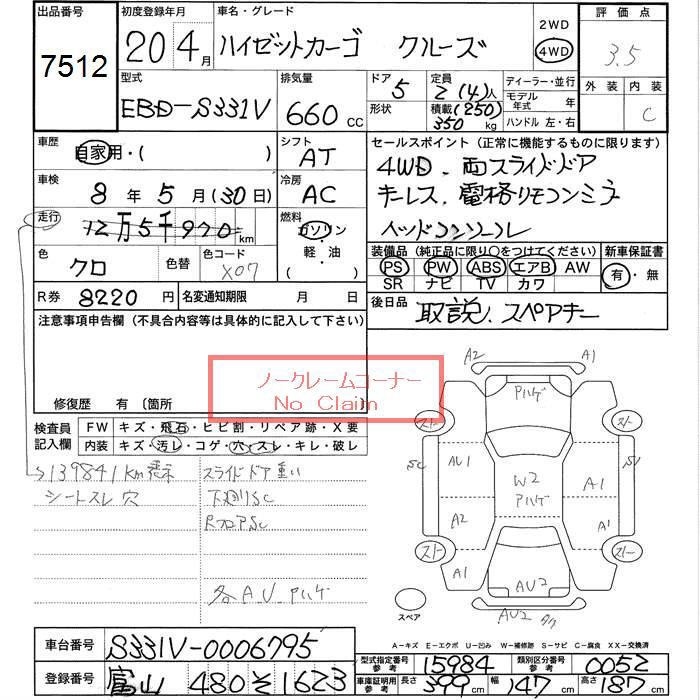 出品番号 初度登録年月 車名・グレード 2WD 評価点
7512 20 4月 ハイゼットカーゴ クルーズ 4WD 3.5
型式 排気量 ドア 5 定員 2(4)人 ディーラー・並行 外装 内装
EBD-S331V 660 cc 形状 積載(250) 350kg モデル年式 年 C
ハンドル 左・右
車歴 自家用・( ) シフト AT セールスポイント(正常に機能するものに限ります)
車検 8年5月(30日) 冷房 AC 4WD、両スライドドア
走行 12万5千970km 燃料 ガソリン・軽・油 キーレス、電格リモコンミラー
ヘッドコンソーレ
色 クロ 色替 色コード X07 装備品(純正品に限り○をつけてください) 新車保証書
PS PW ABS エアB AW 有・無
SR ナビ TV カワ
R券 8220円 名変通知期限 月 日 後日品 取説、スペアキー
注意事項申告欄(不具合内容等は具体的に記入して下さい)
ノークレームコーナー
No Claim
修復歴 有〔箇所 〕
検査員記入欄 FW キズ・飛石・ヒビ割・リペア跡・X要
内装 キズ・汚レ・コゲ・穴・スレ・キレ・破レ
139841km表示 スライドドア重い
シートスレ 穴 下廻りSC
RフロアSC
各A.U.Pハゲ
A2 A1
Pハゲ
スト スト
SC AU1 W2 S1
Pハゲ
A2 A1 A1
スト スト
A1 AU2 A1
スペア AU2
A-キズ E-エクボ U-凹み W-補修跡 S-サビ C-腐食 XX-交換済
車台番号 S331V-0006795 型式指定番号 参考 15984 類別区分番号 参考 0052
登録番号 富山 480 そ 1623 車庫証明用参考 長さ 399cm 幅 147cm 高さ 187cm